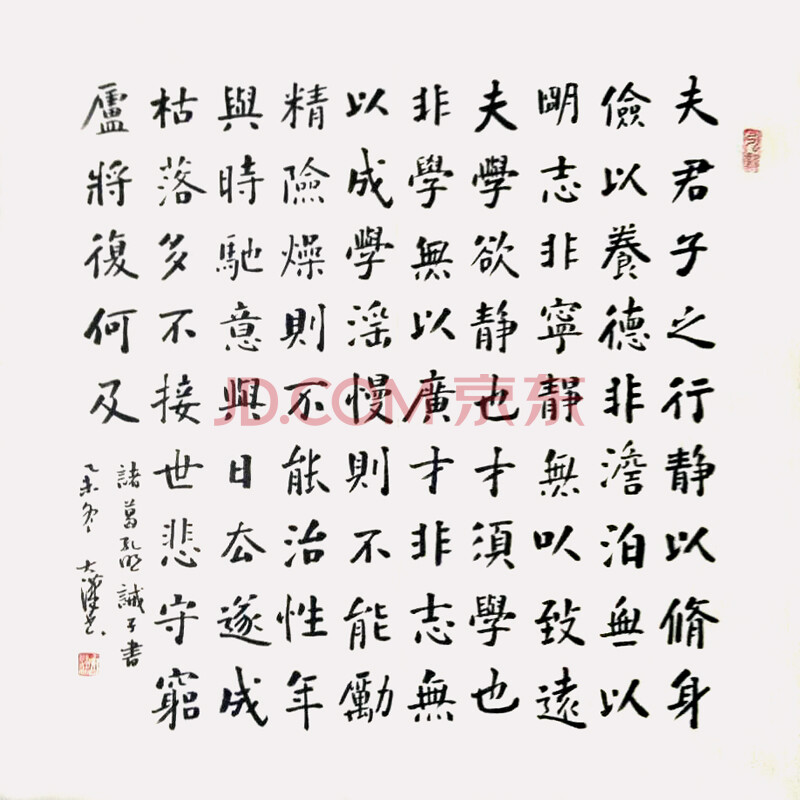 夫君子之行静以脩身
儉以養德非澹泊無以
眀志非寧靜無以致遠
夫學欲静也才須學也
非學無以廣才非志無
以成學滛慢則不能勵
精險燥則不能治性年
與時馳意與日去遂成
枯落多不接世悲守窮
廬將復何及
諸葛孔明誡子書
乙未冬 大漢書
JD.COM京东